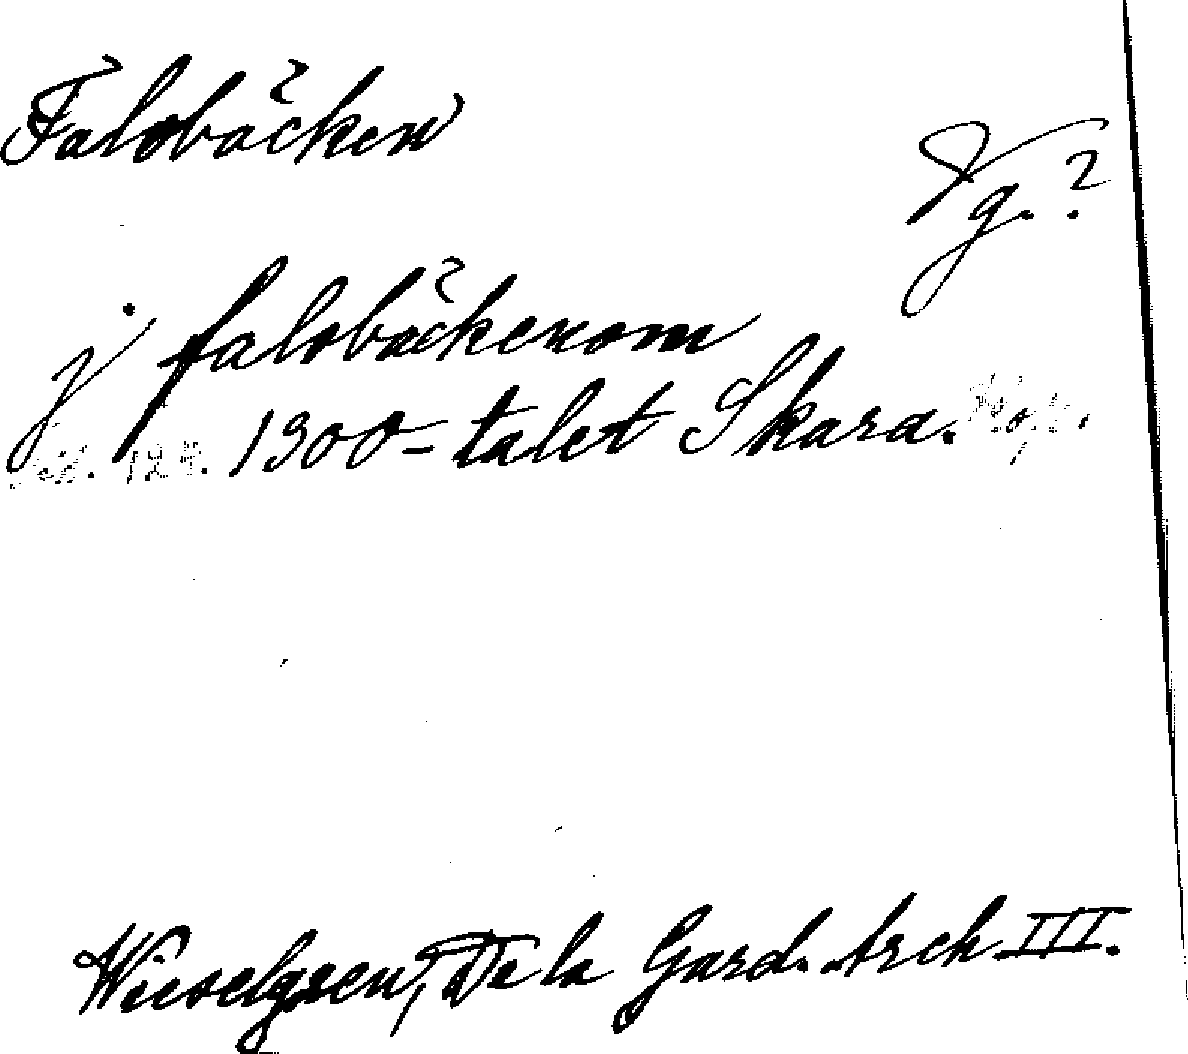 Falobäcken
Vg. ?
j falobäckenom
sid. 124. 1300-talet Skara.
Wieselgren, De la Gard. Arch III.